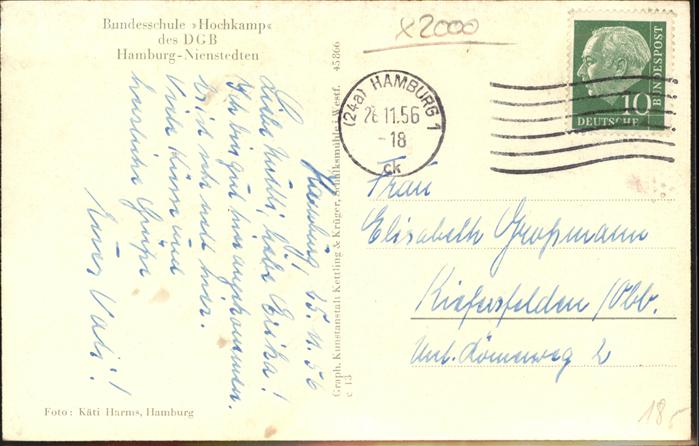 Bundesschule »Hochkamp«
des DGB
Hamburg-Nienstedten
x2000
(24a) HAMBURG 1
26.11.56
-18
ck
DEUTSCHE
BUNDESPOST
10
Hamburg, 25.11.56
Liebe Mutti, liebe Erika!
Ich bin gut hier angekommen.
noch
Viele Küsse und
herzliche Grüße
Euer Vati!
Graph. Kunstanstalt Kettling & Krüger, Schalksmühle Westf. 45866
c 13
Frau
Elisabeth Großmann
Kiefersfelden/Obb.
Unt. Römerweg 2
Foto: Käti Harms, Hamburg
18,-